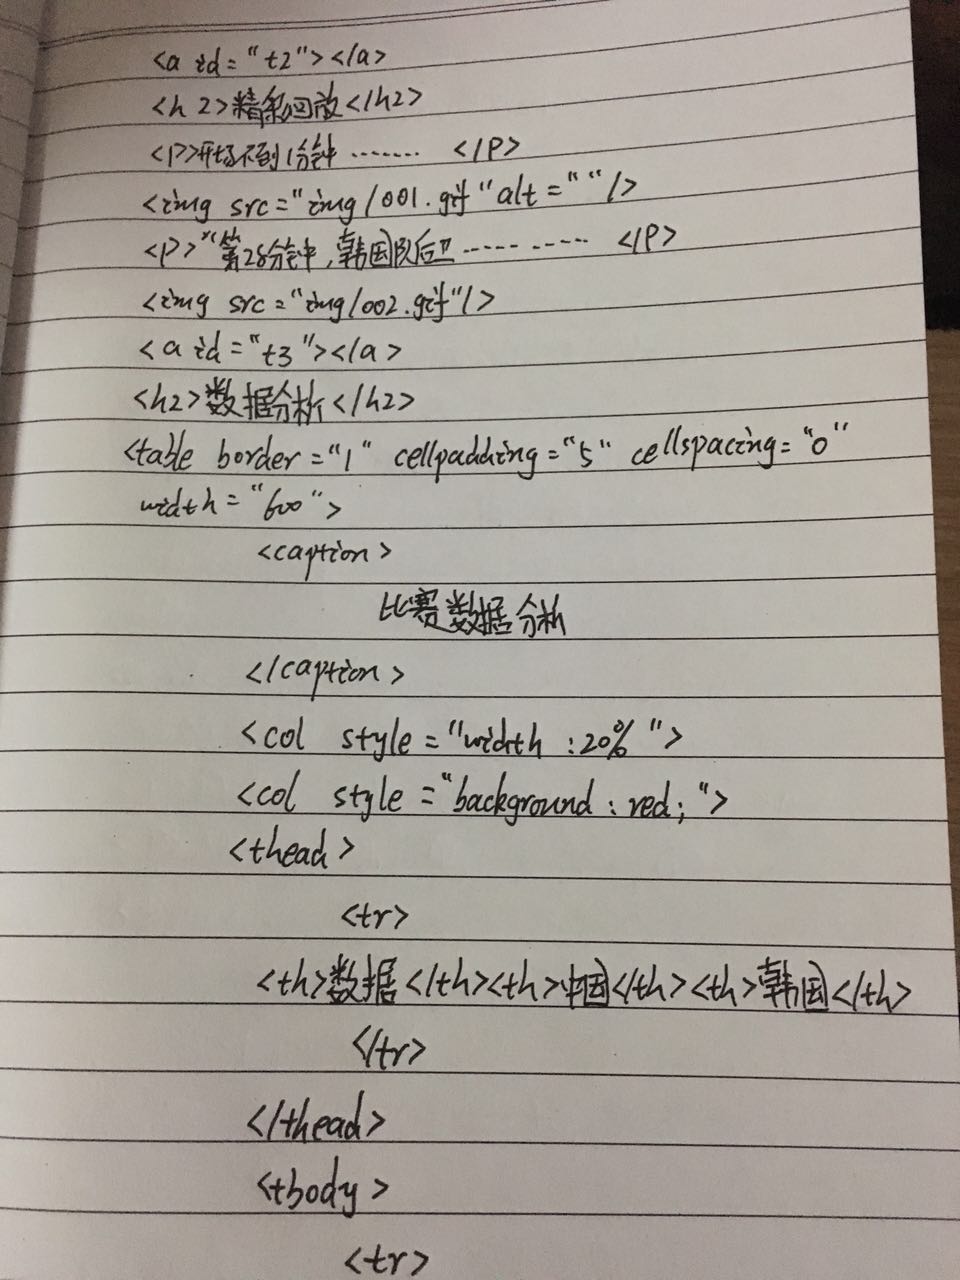 <a id="t2"></a>
<h2>精彩回放</h2>
<P>开场不到1分钟 ……… </P>
<img src="img/001.gif"alt=""/>
<P>"第28分钟,韩国队后卫 ………… </P>
<img src="img/002.gif"/>
<a id="t3"></a>
<h2>数据分析</h2>
<table border="1" cellpadding="5" cellspacing="0"
width="600">
<caption>
比赛数据分析
</caption>
<col style="width:20%">
<col style="background:red;">
<thead>
<tr>
<th>数据</th><th>中国</th><th>韩国</th>
</tr>
</thead>
<tbody>
<tr>